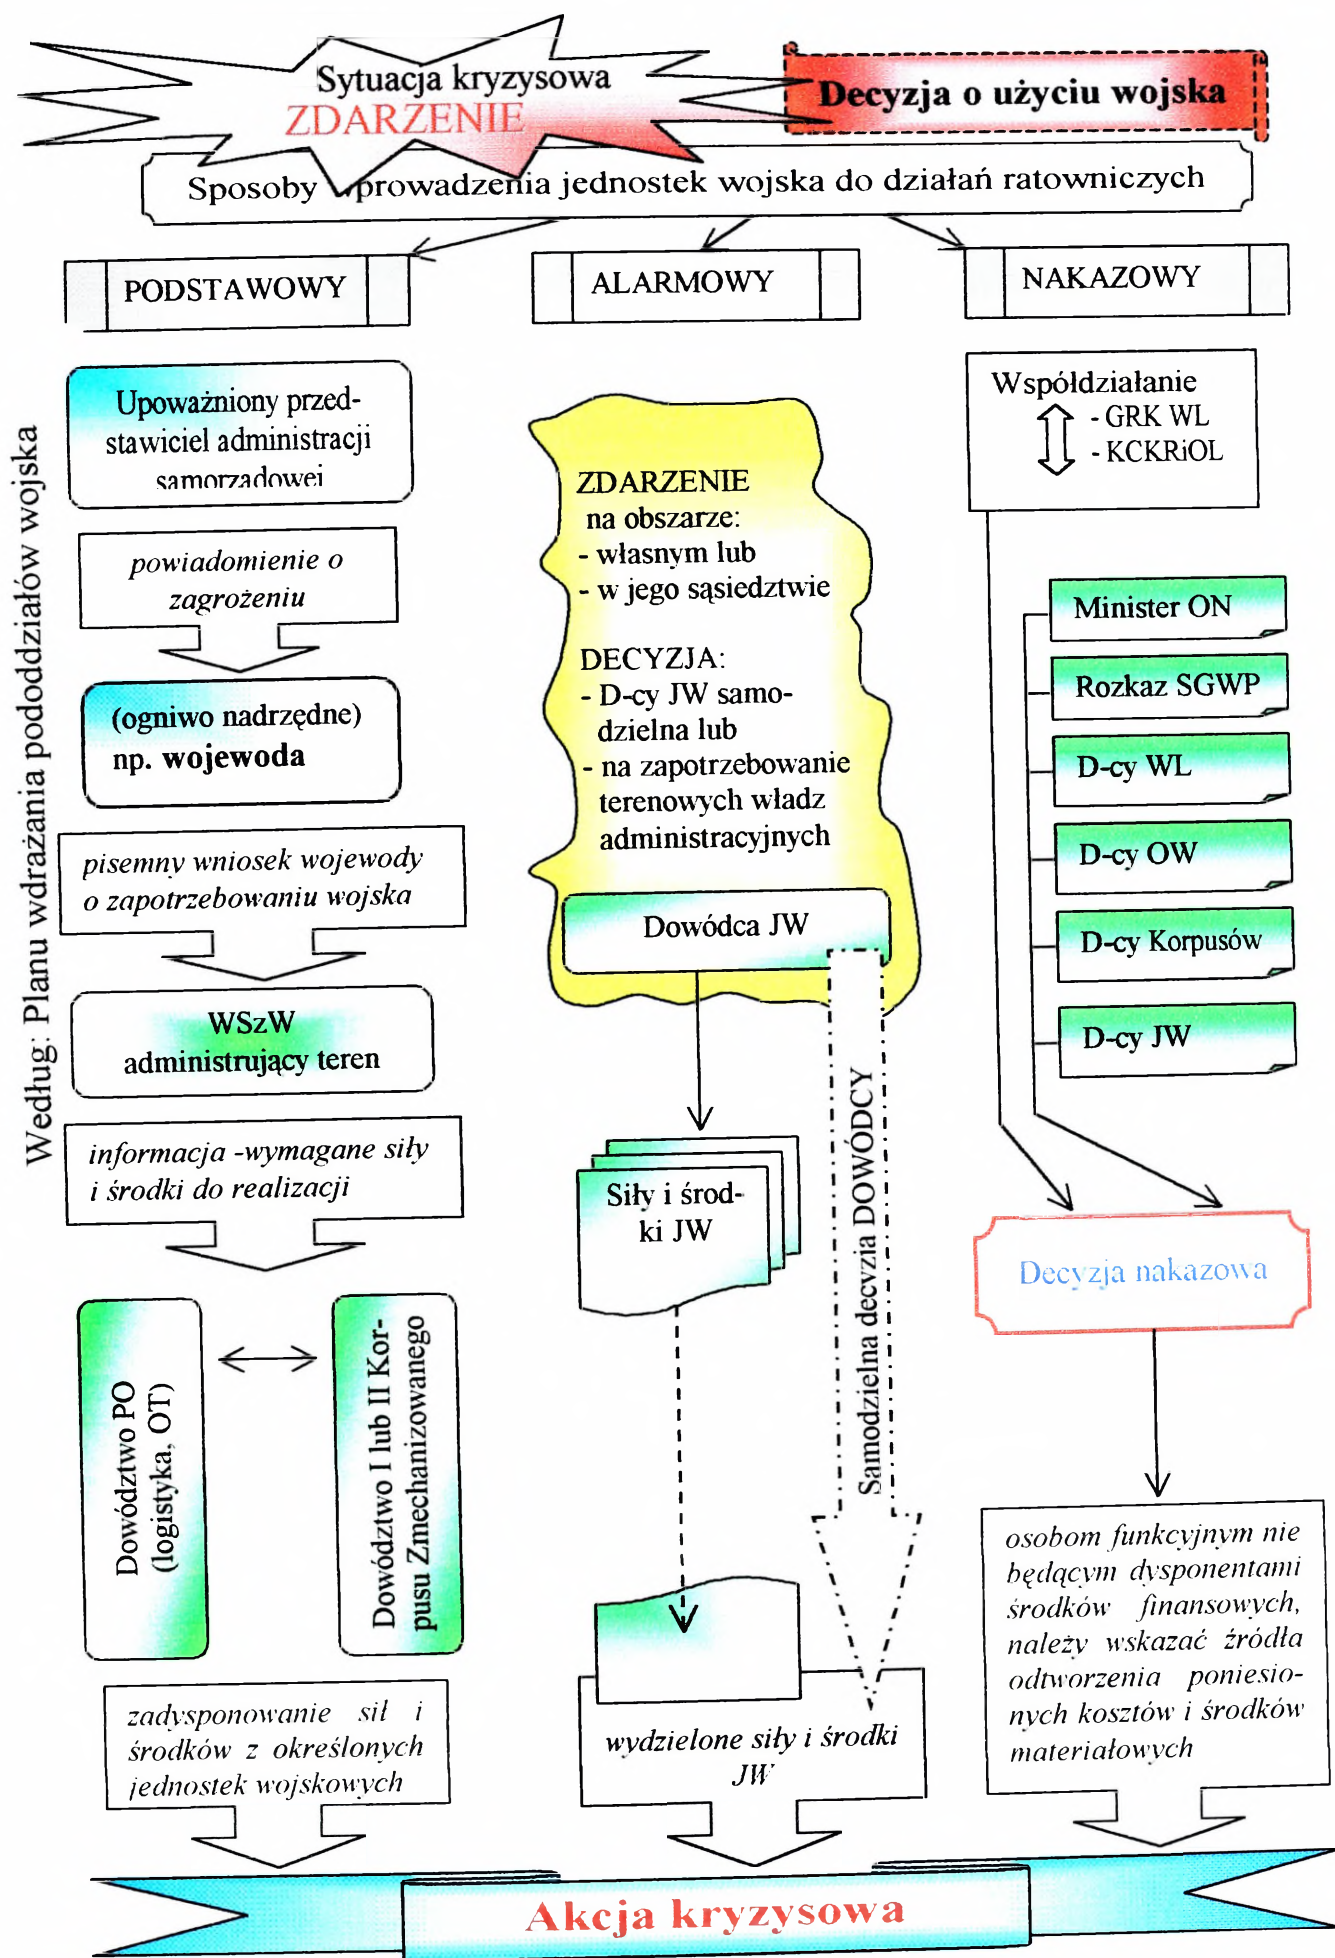 Sytuacja kryzysowa
ZDARZENIE
Decyzja o użyciu wojska
Sposoby wprowadzenia jednostek wojska do działań ratowniczych
PODSTAWOWY
ALARMOWY
NAKAZOWY
Według: Planu wdrażania pododdziałów wojska
Upoważniony przed-
stawiciel administracji
samorządowej
powiadomienie o
zagrożeniu
(ogniwo nadrzędne)
np. wojewoda
pisemny wniosek wojewody
o zapotrzebowaniu wojska
WSzW
administrujący teren
informacja -wymagane siły
i środki do realizacji
Dowództwo PO
(logistyka, OT)
Dowództwo I lub II Kor-
pusu Zmechanizowanego
zadysponowanie sił i
środków z określonych
jednostek wojskowych
ZDARZENIE
na obszarze:
- własnym lub
- w jego sąsiedztwie
DECYZJA:
- D-cy JW samo-
dzielna lub
- na zapotrzebowanie
terenowych władz
administracyjnych
Dowódca JW
Siły i środ-
ki JW
Samodzielna decyzja DOWÓDCY
wydzielone siły i środki
JW
Współdziałanie
- GRK WL
- KCKRiOL
Minister ON
Rozkaz SGWP
D-cy WL
D-cy OW
D-cy Korpusów
D-cy JW
Decyzja nakazowa
osobom funkcyjnym nie
będącym dysponentami
środków finansowych,
należy wskazać źródła
odtworzenia poniesio-
nych kosztów i środków
materiałowych
Akcja kryzysowa